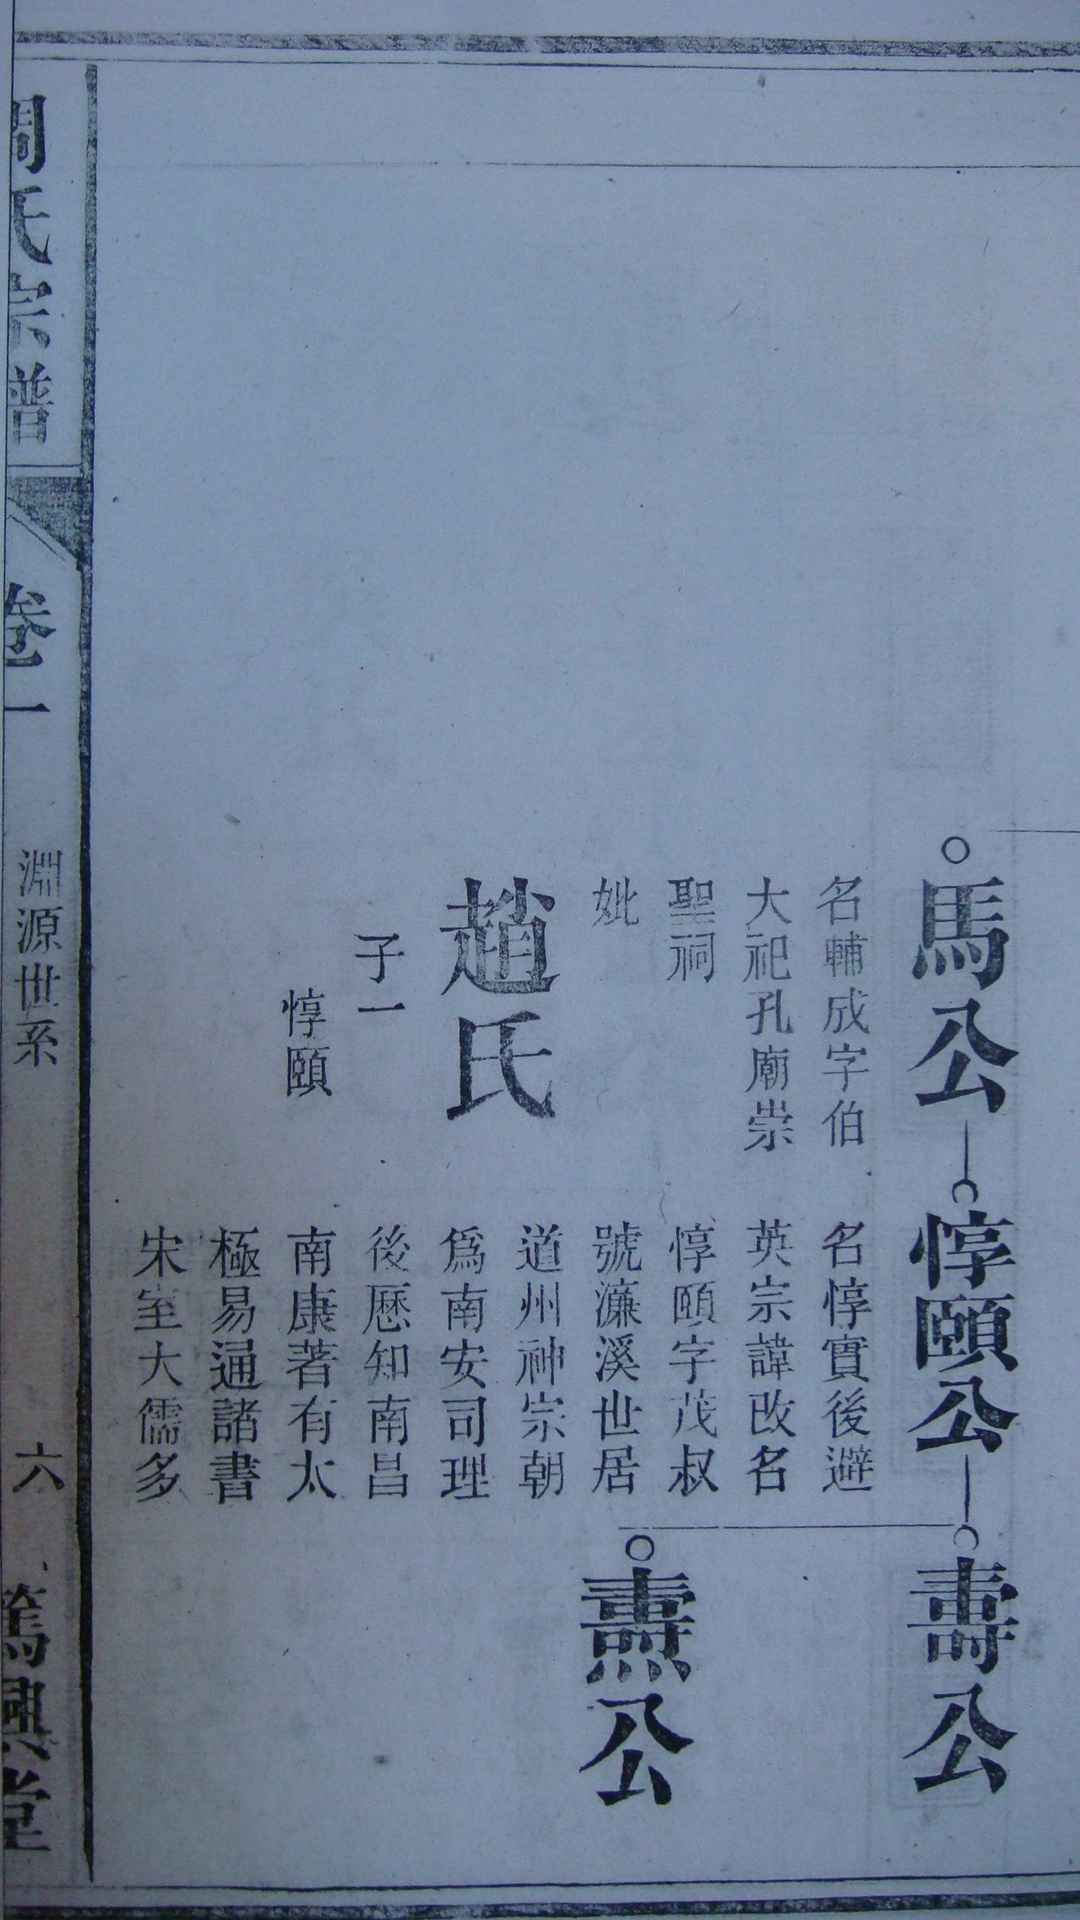 馬公
名輔成字伯
大祀孔廟崇
聖祠
妣
趙氏
子一
惇頤
惇頤公
名惇實後避
英宗諱改名
惇頤字茂叔
號濂溪世居
道州神宗朝
爲南安司理
後歷知南昌
南康著有太
極易通諸書
宋室大儒多
壽公
燾公
周氏宗譜
卷一
淵源世系
六
篤興堂